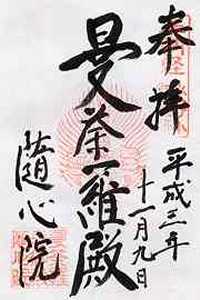 奉拝
平成三年
十一月九日
曼荼羅殿
隨心院